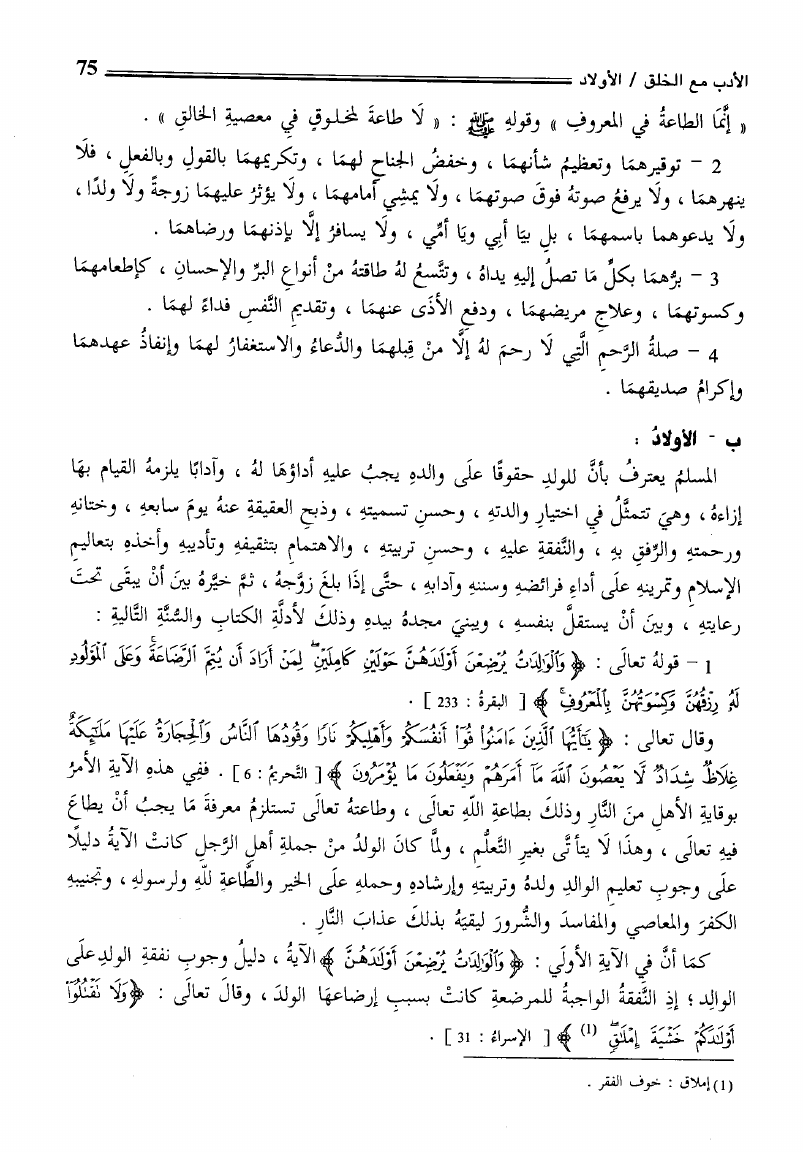 الأدب مع الخلق / الأولاد 75
« إنَّمَا الطاعةُ في المعروفِ » وقولهِ ﷺ : « لَا طاعةَ لمخلوقٍ في معصيةِ الخالقِ » .
2 - توقيرهمَا وتعظيمُ شأنهمَا ، وخفضُ الجناحِ لهمَا ، وتكريمهمَا بالقولِ وبالفعلِ ، فلَا
ينهرهمَا ، ولَا يرفعُ صوتهُ فوقَ صوتهمَا ، ولَا يمشِي أمامهمَا ، ولَا يؤثرُ عليهمَا زوجةً ولَا ولدًا ،
ولَا يدعوهما باسمهمَا ، بلِ بيَا أبِي ويَا أمِّي ، ولَا يسافرُ إلَّا بإذنهمَا ورضاهمَا .
3 - برُّهمَا بكلِّ مَا تصلُ إليهِ يداهُ ، وتتَّسعُ لهُ طاقتهُ منْ أنواعِ البرِّ والإحسانِ ، كإطعامهمَا
وكسوتهمَا ، وعلاجِ مريضهمَا ، ودفعِ الأذَى عنهمَا ، وتقديمِ النَّفسِ فداءً لهمَا .
4 - صلةُ الرَّحمِ الَّتِي لَا رحمَ لهُ إلَّا منْ قِبلهمَا والدُّعاءُ والاستغفارُ لهمَا وإنفاذُ عهدهمَا
وإكرامُ صديقهمَا .
ب - الأولادُ :
المسلمُ يعترفُ بأنَّ للولدِ حقوقًا علَى والدهِ يجبُ عليهِ أداؤهَا لهُ ، وآدابًا يلزمهُ القيام بهَا
إزاءهُ ، وهيَ تتمثَّلُ في اختيارِ والدتهِ ، وحسنِ تسميتهِ ، وذبحِ العقيقةِ عنهُ يومَ سابعهِ ، وختانهِ
ورحمتهِ والرِّفقِ بهِ ، والنَّفقةِ عليهِ ، وحسنِ تربيتهِ ، والاهتمامِ بتثقيفهِ وتأديبهِ وأخذهِ بتعاليمِ
الإسلامِ وتمرينهِ علَى أداءِ فرائضهِ وسننهِ وآدابهِ ، حتَّى إذَا بلغَ زوَّجهُ ، ثمَّ خيَّرهُ بينَ أنْ يبقَى تحتَ
رعايتهِ ، وبينَ أنْ يستقلَّ بنفسهِ ، ويبنيَ مجدهُ بيدهِ وذلكَ لأدلَّةِ الكتابِ والسُّنَّةِ التَّاليةِ :
1 - قولهُ تعالَى : ﴿ وَٱلْوَٰلِدَٰتُ يُرْضِعْنَ أَوْلَٰدَهُنَّ حَوْلَيْنِ كَامِلَيْنِ ۖ لِمَنْ أَرَادَ أَن يُتِمَّ ٱلرَّضَاعَةَ ۚ وَعَلَى ٱلْمَوْلُودِ
لَهُۥ رِزْقُهُنَّ وَكِسْوَتُهُنَّ بِٱلْمَعْرُوفِ ۚ ﴾ [ البقرةُ : 233 ] .
وقال تعالى : ﴿ يَٰٓأَيُّهَا ٱلَّذِينَ ءَامَنُوا۟ قُوٓا۟ أَنفُسَكُمْ وَأَهْلِيكُمْ نَارًا وَقُودُهَا ٱلنَّاسُ وَٱلْحِجَارَةُ عَلَيْهَا مَلَٰٓئِكَةٌ
غِلَاظٌ شِدَادٌ لَّا يَعْصُونَ ٱللَّهَ مَآ أَمَرَهُمْ وَيَفْعَلُونَ مَا يُؤْمَرُونَ ﴾ [ التَّحريمُ : 6 ] . ففِي هذهِ الآيةِ الأمرُ
بوقايةِ الأهلِ منَ النَّارِ وذلكَ بطاعةِ اللّهِ تعالَى ، وطاعتهُ تعالَى تستلزمُ معرفةَ مَا يجبُ أنْ يطاعَ
فيهِ تعالَى ، وهذَا لَا يتأتَّى بغيرِ التَّعلُّمِ ، ولمَّا كانَ الولدُ منْ جملةِ أهلِ الرَّجلِ كانتْ الآيةُ دليلًا
علَى وجوبِ تعليمِ الوالدِ ولدهُ وتربيتهِ وإرشادهِ وحملهِ علَى الخيرِ والطَّاعةِ للّهِ ولرسولهِ ، وتجنيبهِ
الكفرَ والمعاصي والمفاسدَ والشُّرورَ ليقيَهُ بذلكَ عذابَ النَّارِ .
كمَا أنَّ في الآيةِ الأولَي : ﴿ وَٱلْوَٰلِدَٰتُ يُرْضِعْنَ أَوْلَٰدَهُنَّ ﴾ الآيةُ ، دليلُ وجوبِ نفقةِ الولدِ علَى
الوالِد ؛ إذِ النَّفقةُ الواجبةُ للمرضعةِ كانتْ بسببِ إرضاعهَا الولدَ ، وقالَ تعالَى : ﴿وَلَا تَقْتُلُوٓا۟
أَوْلَٰدَكُمْ خَشْيَةَ إِمْلَٰقٍ ۖ (1) ﴾ [ الإسراءُ : 31 ] .
(1) إملاق : خوف الفقر .